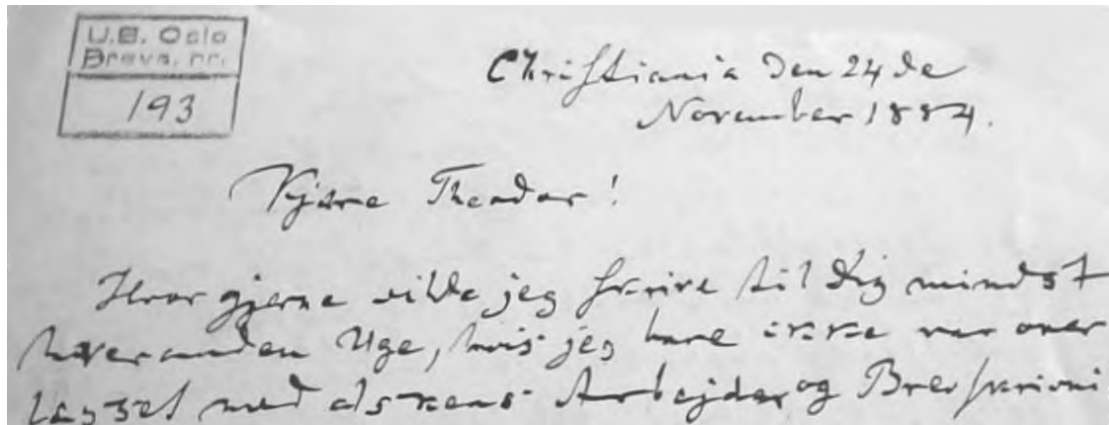 U.B. Oslo
Brevs. nr.
193
Christiania den 24de
November 1884.
Kjære Theodor!
Hvor gjerne vilde jeg skrive til Dig mindst
hveranden Uge, hvis jeg bare ikke var over
læsset med alskens Arbejder og Brevskrivni